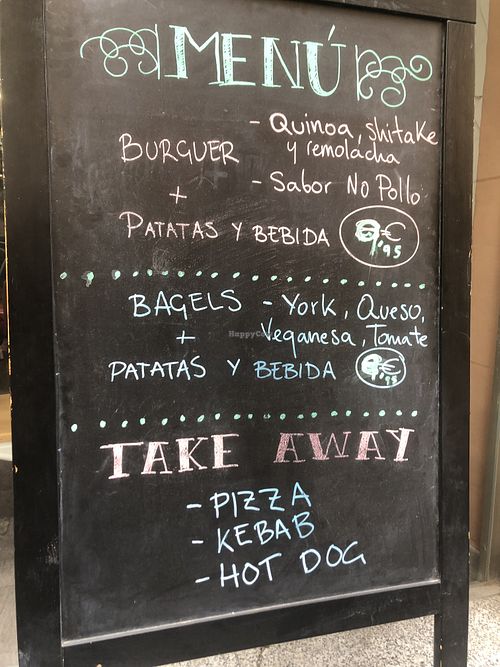 MENÚ
- Quinoa, shitake
BURGUER y remolacha
+ - Sabor No Pollo
PATATAS Y BEBIDA 9'95 €
BAGELS - York, Queso,
+ Veganesa, Tomate
PATATAS Y BEBIDA €
TAKE AWAY
- PIZZA
- KEBAB
- HOT DOG
HappyCow